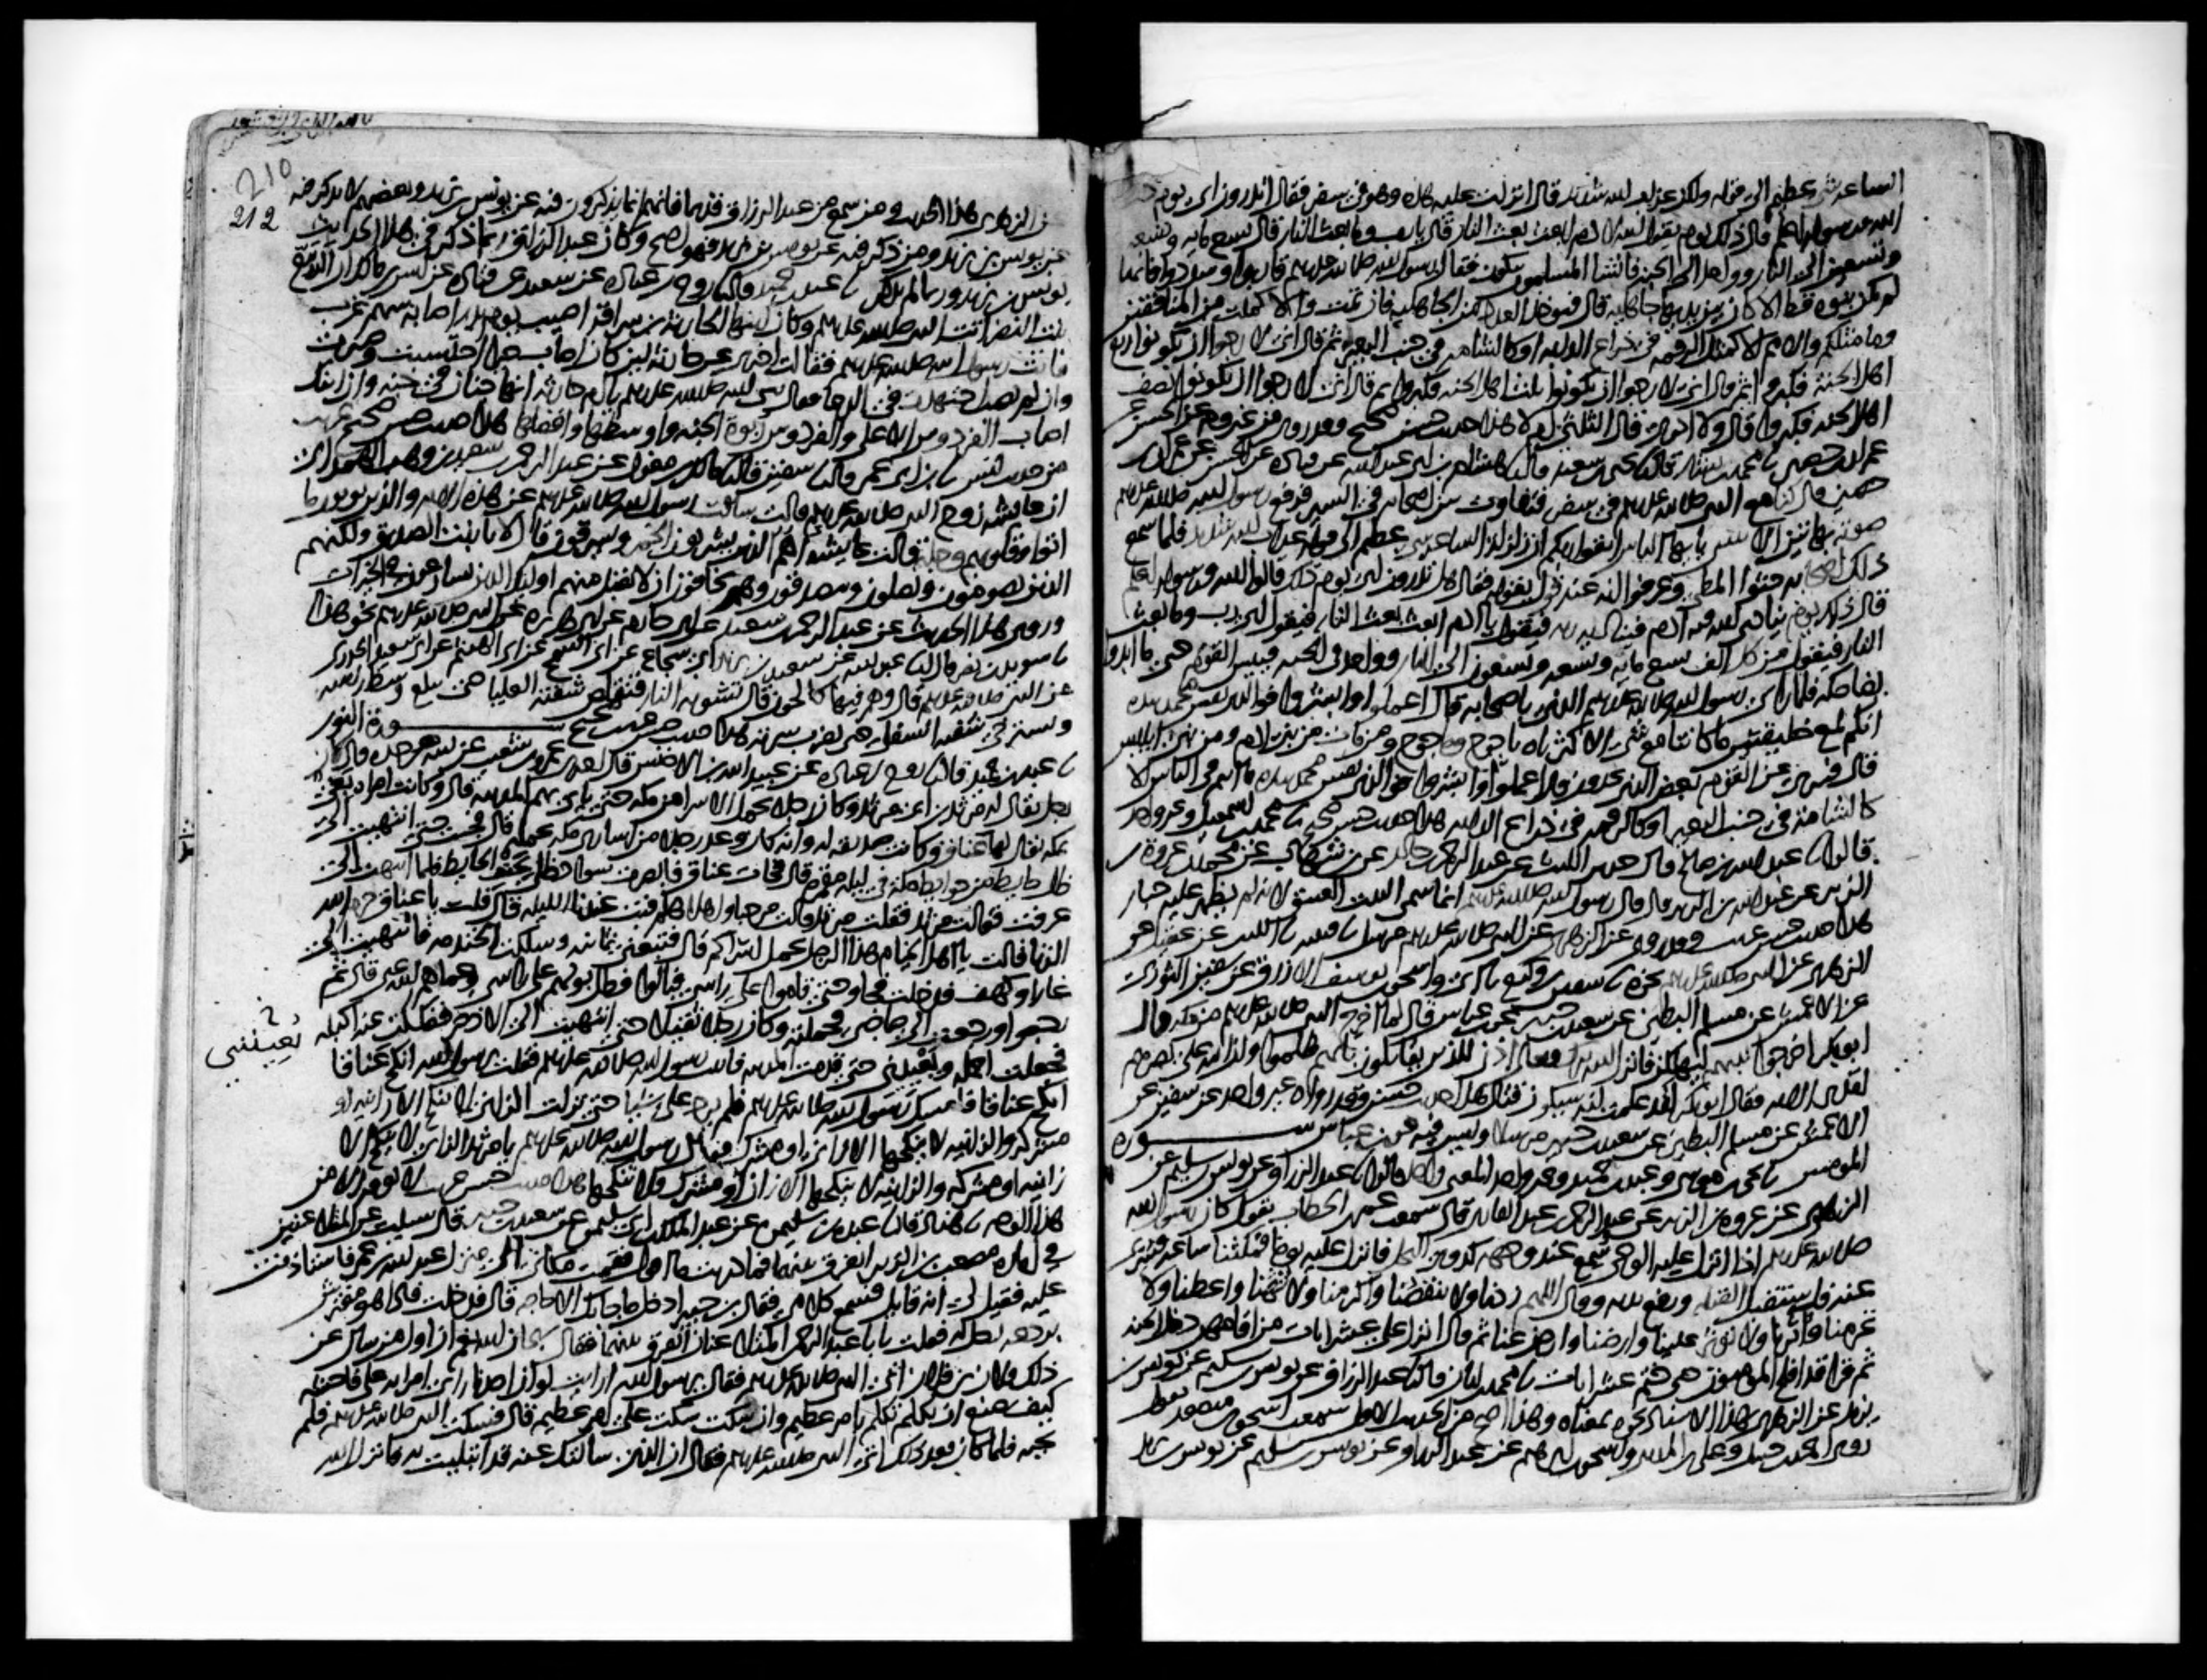 الساعة شي عظيم الى قوله ولكن عذاب الله شديد قال انزلت عليه هذه وهو في سفر فقال اتدرون اي يوم ذلك
الله ورسوله اعلم قال ذلك يوم يقول الله لادم ابعث بعث النار قال يا رب وما بعث النار قال تسع مايه وتسعه
وتسعين الى النار وواحد الى الجنه فانشا المسلمون يبكون فقال رسول الله صلى الله عليه وسلم قاربوا وسددوا فانها
لم تكن نبوه قط الا كان بين يديها جاهليه قال فيوخذ العدد من الجاهليه فان تمت والا كملت من المنافقين
وما مثلكم والامم الا كمثل الرقمه في ذراع الدابه او كالشامه في جنب البعير ثم قال اني لارجوا ان تكونوا ربع
اهل الجنة فكبروا ثم قال اني لارجوا ان تكونوا ثلث اهل الجنه فكبروا ثم قال اني لارجوا ان تكونوا نصف
اهل الجنه فكبروا قال ولا ادري قال الثلثين ام لا هذا حديث حسن صحيح وقد روي من غير وجه عن الحسن عن
عمران بن حصين نا محمد بن بشار قال نا يحيى بن سعيد قال نا هشام بن ابي عبد الله عن قتاده عن الحسن عن عمران بن
حصين قال كنا مع النبي صلى الله عليه وسلم في سفر فتفاوت بين اصحابه في السير فرفع رسول الله صلى الله عليه وسلم
صوته بهاتين الايتين يا ايها الناس اتقوا ربكم ان زلزلة الساعه شي عظيم الى قوله عذاب الله شديد فلما سمع
ذلك اصحابه حثوا المطي وعرفوا انه عند قول يقوله فقال هل تدرون اي يوم ذلك قالوا الله ورسوله اعلم
قال ذلك يوم ينادي الله فيه ادم فيناديه ربه فيقول يا ادم ابعث بعث النار فيقول اي رب وما بعث
النار فيقول من كل الف تسع مايه وتسعه وتسعون الى النار وواحد في الجنه فييس القوم حتى ما ابدوا
بضاحكه فلما راى رسول الله صلى الله عليه وسلم الذي باصحابه قال اعملوا وابشروا فوالذي نفس محمد بيده
انكم لمع خليقتين ما كانتا مع شي الا كثرتاه ياجوج وماجوج ومن مات من بني ادم ومن بني ابليس
قال فسري عن القوم بعض الذي يجدون قال اعملوا وابشروا فوالذي نفس محمد بيده ما انتم في الناس الا
كالشامه في جنب البعير او كالرقمه في ذراع الدابه هذا حديث حسن صحيح نا محمد بن اسمعيل وغير واحد
قالوا نا عبد الله بن صالح قال حدثني الليث عن عبد الرحمن بن خالد عن ابن شهاب عن محمد بن عروة بن
الزبير عن عبد الله بن الزبير قال قال رسول الله صلى الله عليه وسلم انما سمي البيت العتيق لانه لم يظهر عليه جبار
هذا حديث حسن غريب وقد روي عن الزهري عن النبي صلى الله عليه وسلم مرسلا نا قتيبه نا الليث عن عقيل عن
الزهري عن النبي صلى الله عليه وسلم نحوه نا سفيان بن وكيع نا ابي واسحق بن يوسف الازرق عن سفين الثوري
عن الاعمش عن مسلم البطين عن سعيد بن جبير عن ابن عباس قال لما اخرج النبي صلى الله عليه وسلم من مكه قال
ابو بكر اخرجوا نبيهم ليهلكن فانزل الله تبارك وتعالى اذن للذين يقاتلون بانهم ظلموا وان الله على نصرهم
لقدير الايه فقال ابو بكر لقد علمت انه سيكون قتال هذا حديث حسن وقد رواه غير واحد عن سفين عن
الاعمش عن مسلم البطين عن سعيد بن جبير مرسلا وليس فيه عن ابن عباس ســــــورة
المومنين نا يحيى بن موسى وعبد بن حميد وغير واحد المعنى واحد قالوا نا عبد الرزاق عن يونس بن سليم عن
الزهري عن عروة بن الزبير عن عبد الرحمن بن عبد القاري قال سمعت عمر بن الخطاب يقول كان رسول الله
صلى الله عليه وسلم اذا انزل عليه الوحي سمع عند وجهه كدوي النحل فانزل عليه يوما فمكثنا ساعه فسري
عنه فاستقبل القبله ورفع يديه وقال اللهم زدنا ولا تنقصنا واكرمنا ولا تهنا واعطنا ولا
تحرمنا واثرنا ولا توثر علينا وارضنا وارض عنا ثم قال انزل علي عشر ايات من اقامهن دخل الجنه
ثم قرا قد افلح المومنون حتى ختم عشر ايات نا محمد بن ابان قال نا عبد الرزاق عن يونس بن سليم عن يونس بن
يزيد عن الزهري بهذا الاسناد نحوه بمعناه وهذا اصح من الحديث الاول سمعت اسحق بن منصور يقول
روى احمد بن حنبل وعلي بن المديني واسحق بن ابرهيم عن عبد الرزاق عن يونس بن سليم عن يونس بن يزيد
210
212
عن الزهري هذا الحديث ومن سمع من عبد الرزاق قديما فانهم انما يذكرون فيه عن يونس بن يزيد وبعضهم لا يذكر فيه
عن يونس بن يزيد ومن ذكر فيه عن يونس بن يزيد فهو اصح وكان عبد الرزاق ربما ذكر في هذا الحديث
يونس بن يزيد وربما لم يذكره نا عبد بن حميد قال نا روح بن عباده عن سعيد عن قتاده عن انس بن مالك ان الربيع
بنت النضر اتت النبي صلى الله عليه وسلم وكان ابنها الحارثة بن سراقة اصيب يوم بدر اصابه سهم غرب
فاتت رسول الله صلى الله عليه وسلم فقالت اخبرني عن حارثة لين كان اصاب خيرا احتسبت وصبرت
وان لم يصب خيرا اجتهدت في الدعا فقال نبي الله صلى الله عليه وسلم يا ام حارثه انها جنان في جنه وان ابنك
اصاب الفردوس الاعلى والفردوس ربوة الجنه واوسطها وافضلها هذا حديث حسن صحيح غريب
من حديث انس نا ابن ابي عمر قال نا سفين قال نا مالك بن مغول عن عبد الرحمن بن سعيد بن وهب الهمداني
ان عايشه زوج النبي صلى الله عليه وسلم قالت سالت رسول الله صلى الله عليه وسلم عن هذه الايه والذين يوتون ما
اتوا وقلوبهم وجله قالت عايشه اهم الذين يشربون الخمر ويسرقون قال لا يا بنت الصديق ولكنهم
الذين يصومون ويصلون ويتصدقون وهم يخافون ان لا تقبل منهم اوليك الذين يسارعون في الخيرات
وروي هذا الحديث عن عبد الرحمن بن سعيد عن ابي حازم عن ابي هريره عن النبي صلى الله عليه وسلم نحو هذا
نا سويد بن نصر قال انا عبد الله عن سعيد بن يزيد ابي شجاع عن ابي السمح عن ابي الهيثم عن ابي سعيد الخدري
عن النبي صلى الله عليه وسلم قال وهم فيها كالحون قال تشويه النار فتقلص شفته العليا حتى تبلغ وسط راسه
وتسترخي شفته السفلى حتى تضرب سرته هذا حديث حسن غريب صحيح ســــــورة النور
نا عبد بن حميد قال نا روح بن عباده عن عبيد الله بن الاخنس قال اخبرني عمرو بن شعيب عن ابيه عن جده قال كان
رجل يقال له مرثد بن ابي مرثد وكان رجلا يحمل الاسرى من مكه حتى ياتي بهم المدينه قال وكانت امراه بغي
بمكه يقال لها عناق وكانت صديقه له وانه كان وعد رجلا من اسارى مكه يحمله قال فجيت حتى انتهيت الى
ظل حايط من حوايط مكه في ليله مقمره قال فجات عناق فابصرت سواد ظلي بجنب الحايط فلما انتهت الي
عرفت فقالت مرثد فقلت مرثد قالت مرحبا واهلا هلم فبت عندنا الليله قال قلت يا عناق حرم الله
الزنا قالت يا اهل الخيام هذا الرجل يحمل اسراكم قال فتبعني ثمانيه وسلكت الخندمه فانتهيت الى
غار او كهف فدخلت فجاوا حتى قاموا على راسي فبالوا فظل بولهم على راسي وعماهم الله عني قال ثم
رجعوا ورجعت الى صاحبي فحملته وكان رجلا ثقيلا حتى انتهيت الى الاذخر ففككت عنه اكبله
فجعلت احمله ويعييني حتى قدمت المدينه فاتيت رسول الله صلى الله عليه وسلم فقلت يرسول الله انكح عناقا
يعييني
انكح عناقا فامسك رسول الله صلى الله عليه وسلم فلم يرد علي شيا حتى نزلت الزاني لا ينكح الا زانيه او
مشركه والزانيه لا ينكحها الا زان او مشرك فقال رسول الله صلى الله عليه وسلم يا مرثد الزاني لا ينكح الا
زانيه او مشركه والزانيه لا ينكحها الا زان او مشرك فلا تنكحها هذا حديث حسن غريب لا نعرفه الا من
هذا الوجه نا هناد قال نا عبده بن سليمن عن عبد الملك بن ابي سليمن عن سعيد بن جبير قال سيلت عن المتلاعنين
في اماره مصعب بن الزبير ايفرق بينهما فما دريت ما اقول فقمت مكاني الى منزل عبد الله بن عمر فاستاذنت
عليه فقيل لي انه قايل فسمع كلامي فقال ابن جبير ادخل ما جا بك الا حاجه قال فدخلت فاذا هو مفترش
بردعه رحل له فقلت يا با عبد الرحمن المتلاعنان ايفرق بينهما فقال سبحان الله نعم ان اول من سال عن
ذلك فلان بن فلان اتى النبي صلى الله عليه وسلم فقال يرسول الله ارايت لو ان احدنا راى امراته على فاحشه
كيف يصنع ان تكلم تكلم بامر عظيم وان سكت سكت على امر عظيم قال فسكت النبي صلى الله عليه وسلم فلم
يجبه فلما كان بعد ذلك اتى النبي صلى الله عليه وسلم فقال ان الذي سالتك عنه قد ابتليت به فانزل الله